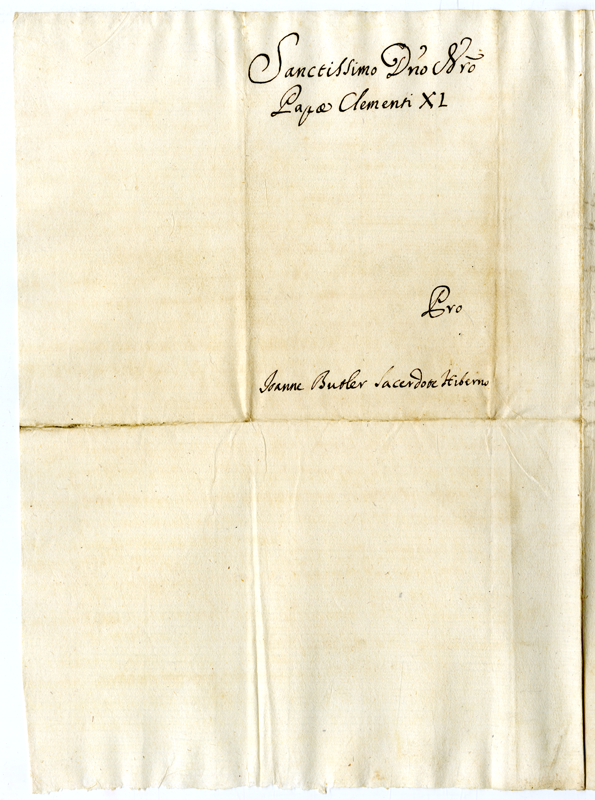 Sanctissimo Dño Nrõ
Papæ Clementi XI
Pro
Joanne Butler Sacerdote Hiberno